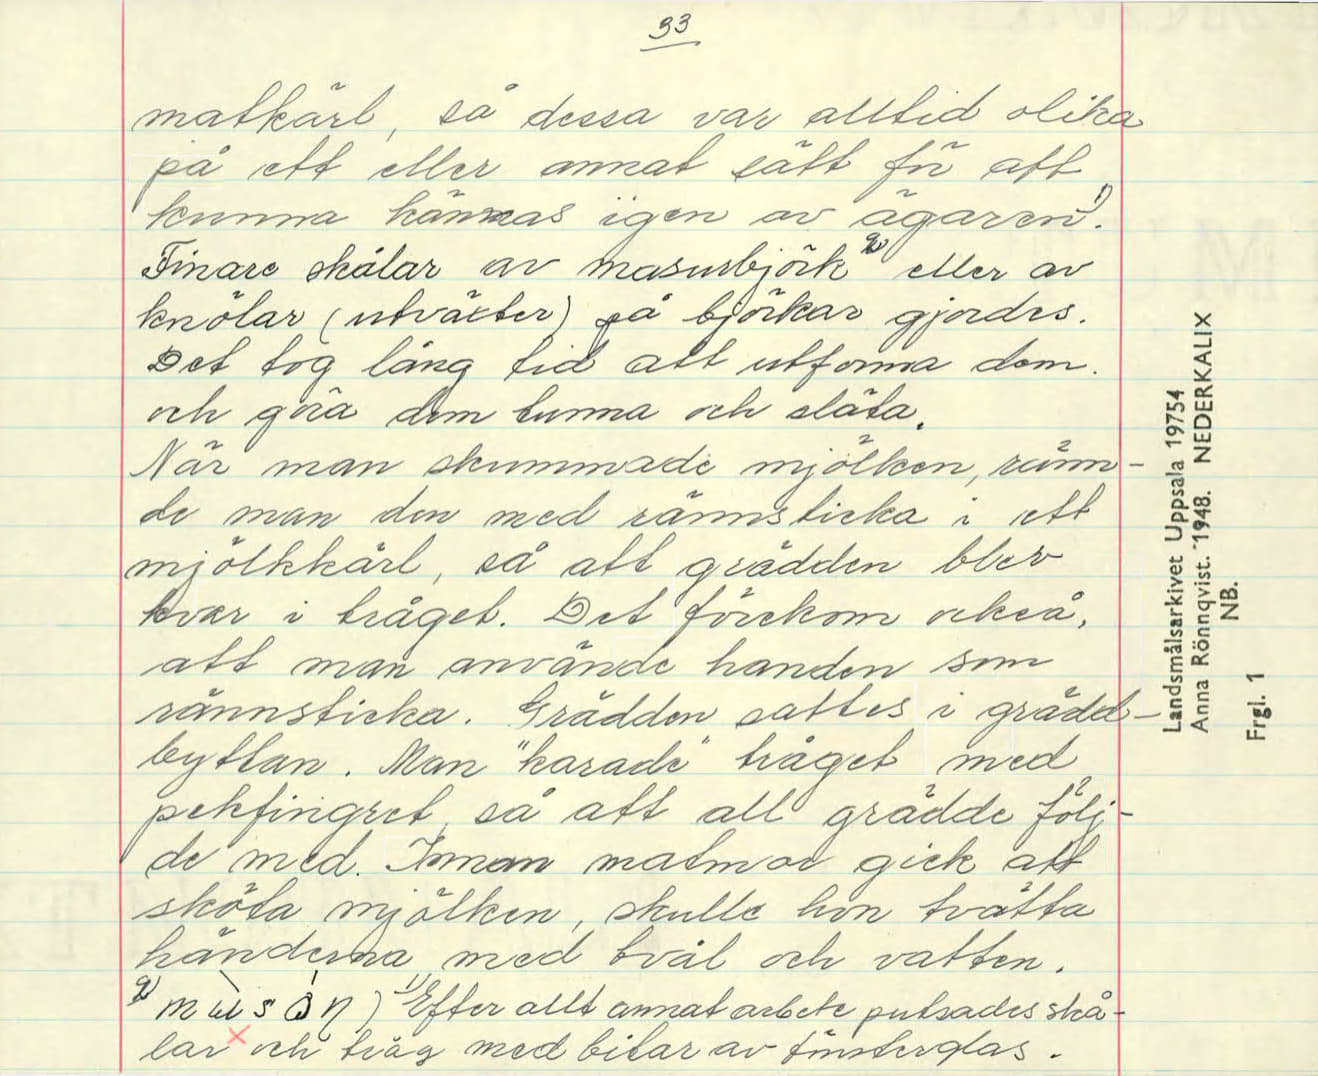 33
matkärl, så dessa var alltid olika
på ett eller annat sätt för att
kunna kännas igen av ägaren 1).
Finare skålar av masurbjörk 2) eller av
knölar (utväxter) på björkar gjordes.
Det tog lång tid att utforma dem.
och göra dem tunna och släta.
När man skummade mjölken, ränn-
de man den med rännsticka i ett
mjölkkärl, så att grädden blev
kvar i tråget. Det förekom också,
att man använde handen som
rännsticka. Grädden sattes i grädd-
byttan. Man "karade" tråget med
pekfingret, så att all grädde följ-
de med. Innan matmor gick att
sköta mjölken, skulle hon tvätta
händerna med tvål och vatten.
2) 1) Efter allt annat arbete putsades skå-
lar och tråg med bitar av fönsterglas.
Landsmålsarkivet Uppsala 19754
Anna Rönnqvist. 1948. NEDERKALIX
NB.
Frgl. 1